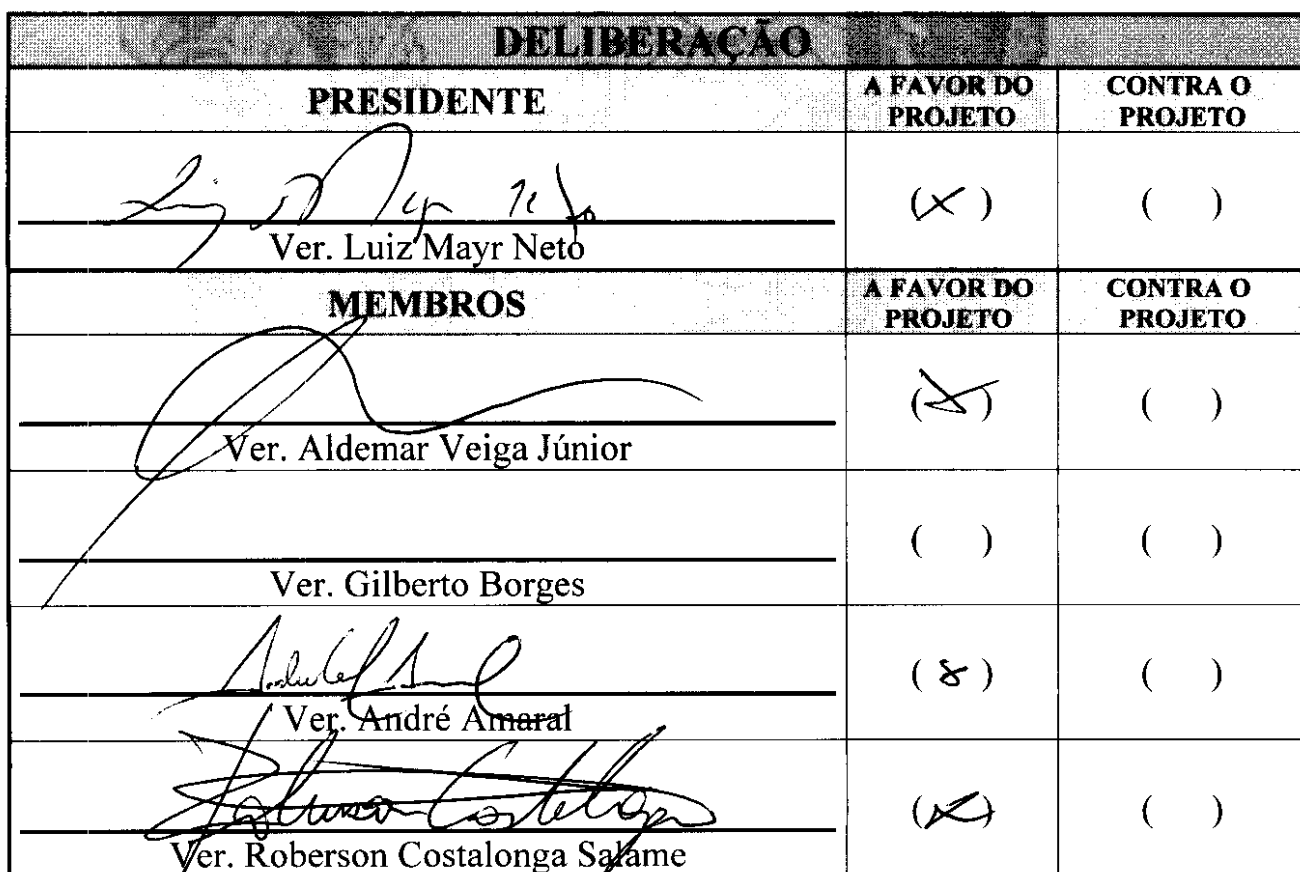 DELIBERAÇÃO
PRESIDENTE
A FAVOR DO
PROJETO
CONTRA O
PROJETO
(X) ( )
Ver. Luiz Mayr Neto
MEMBROS
A FAVOR DO
PROJETO
CONTRA O
PROJETO
(X) ( )
Ver. Aldemar Veiga Júnior
( ) ( )
Ver. Gilberto Borges
(X) ( )
Ver. André Amaral
(X) ( )
Ver. Roberson Costalonga Salame